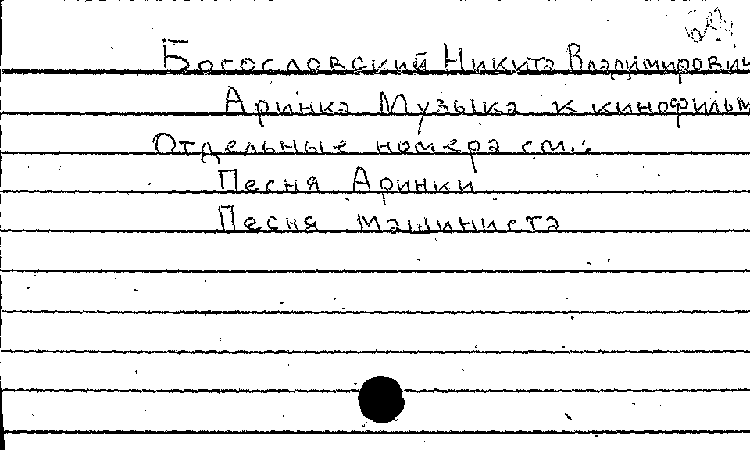 Богословский Никита Владимирович
Аринка Музыка к кинофильм
Отдельные номера см.:
Песня Аринки
Песня машиниста